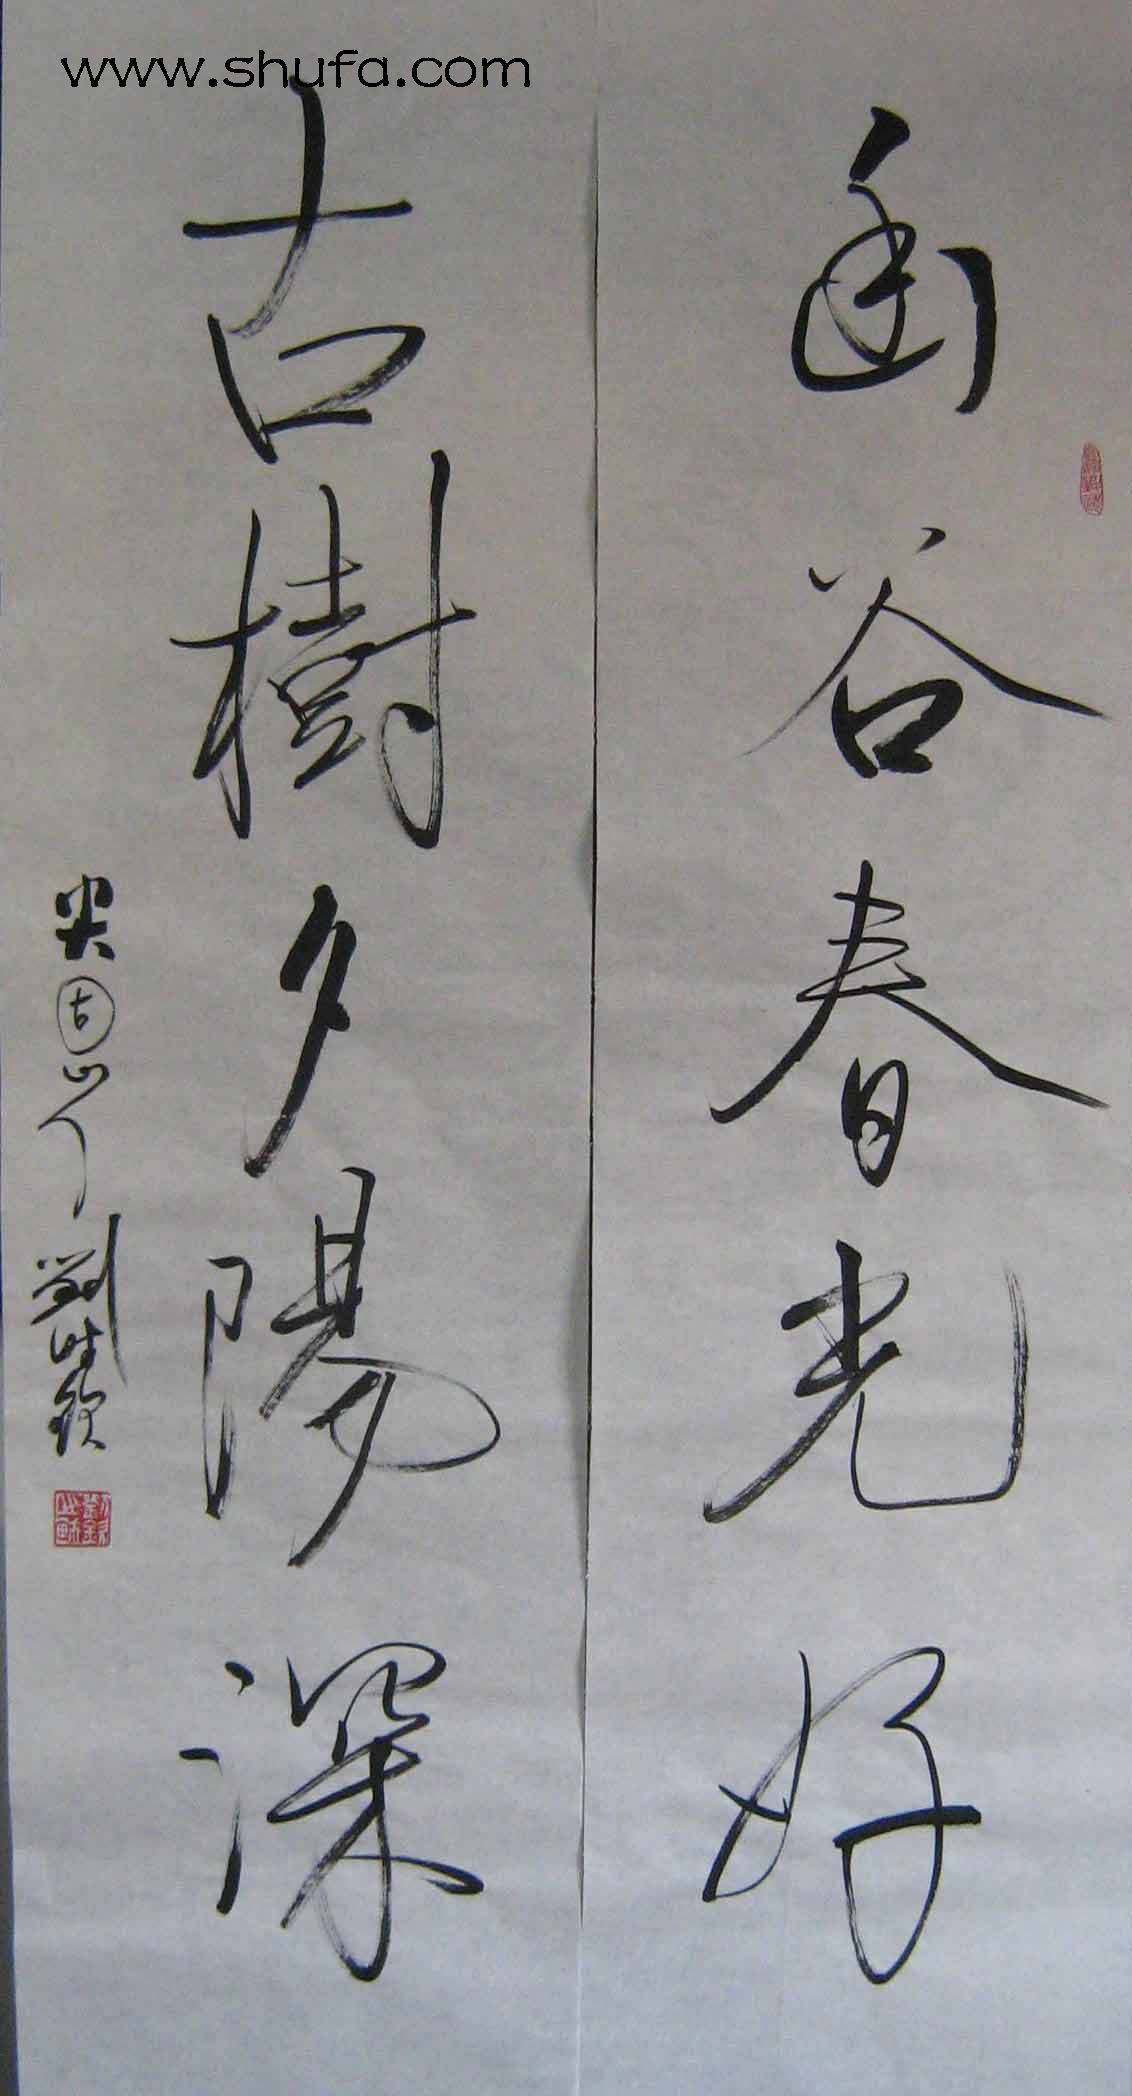 www.shufa.com
幽谷春光好
古樹夕陽深